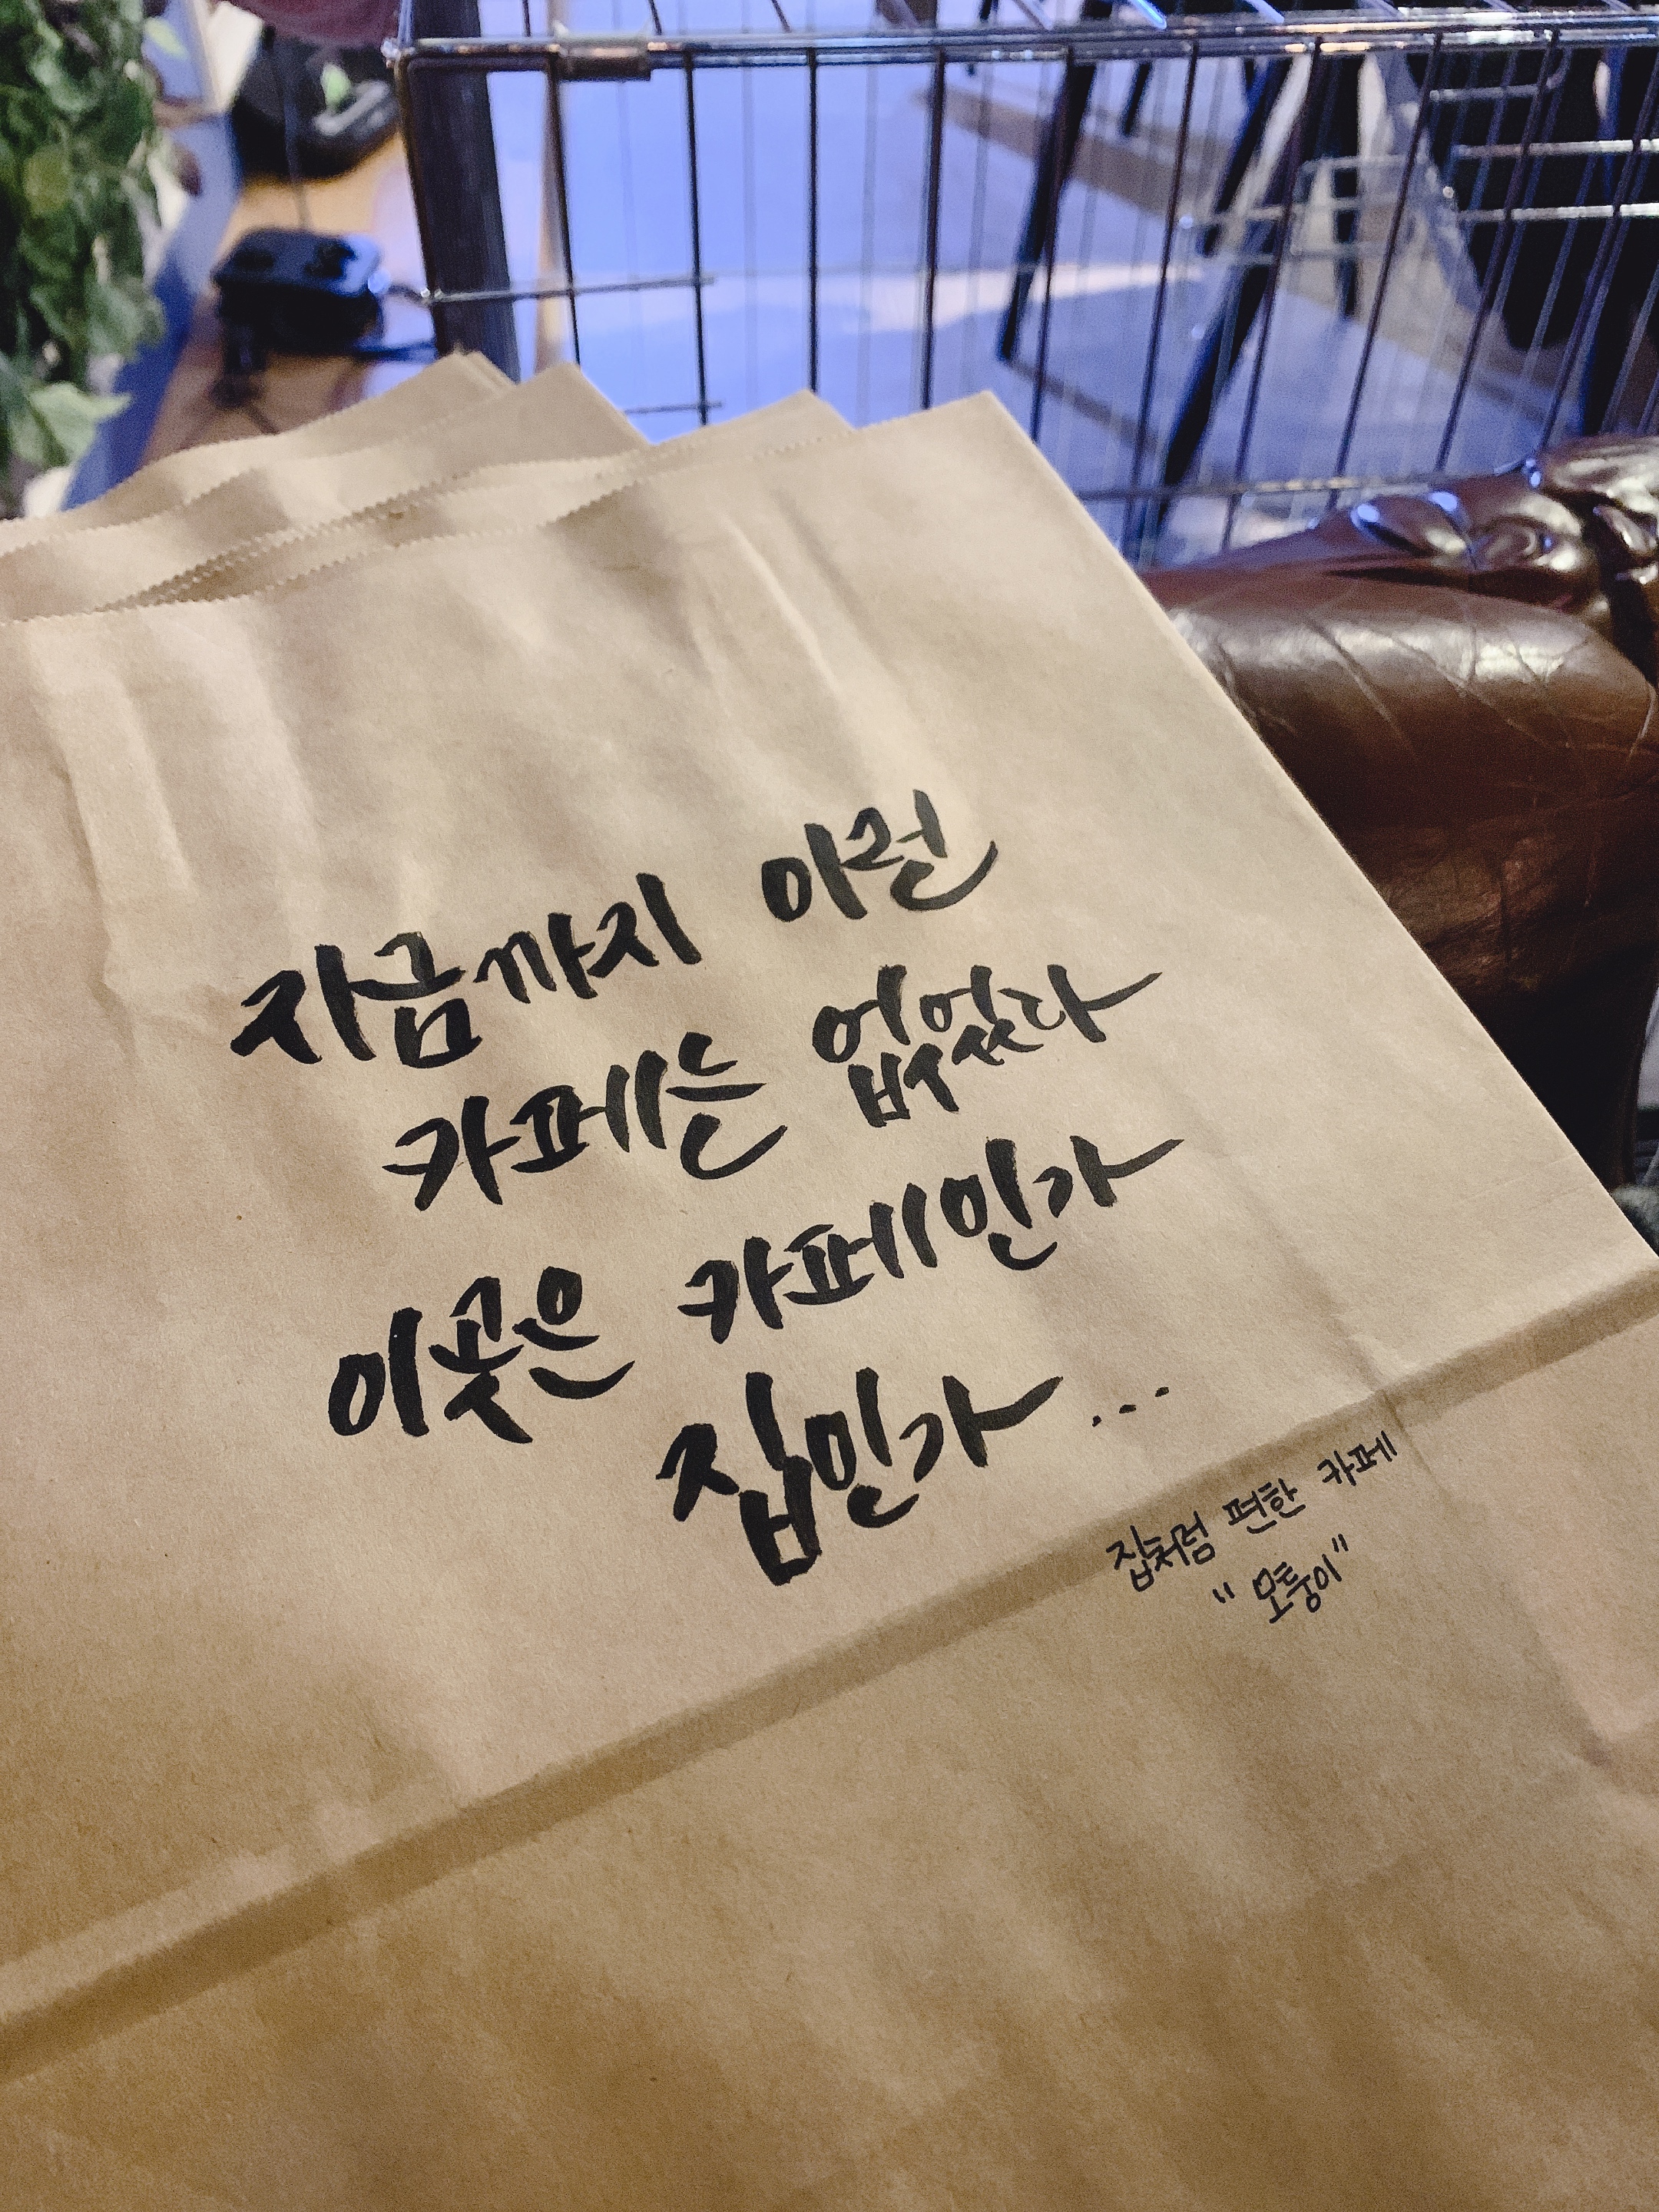 지금까지 이런
카페는 없었다
이곳은 카페인가
집인가...
집처럼 편한 카페
"모퉁이"